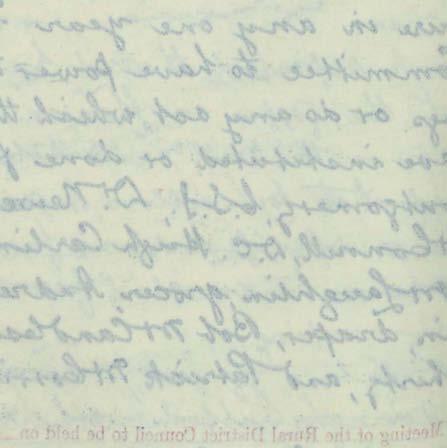 are in any one year
ommittee to have power
or do any act which th
ive instituted or done f
ontgomery, L.S.J. Dr. New
Connell, D.C. Hugh Carlin
McLaughlin, grocer, Andre
n, draper, Bob McCandles
and Patrick McCorri
Meeting of the Rural District Council to be held on